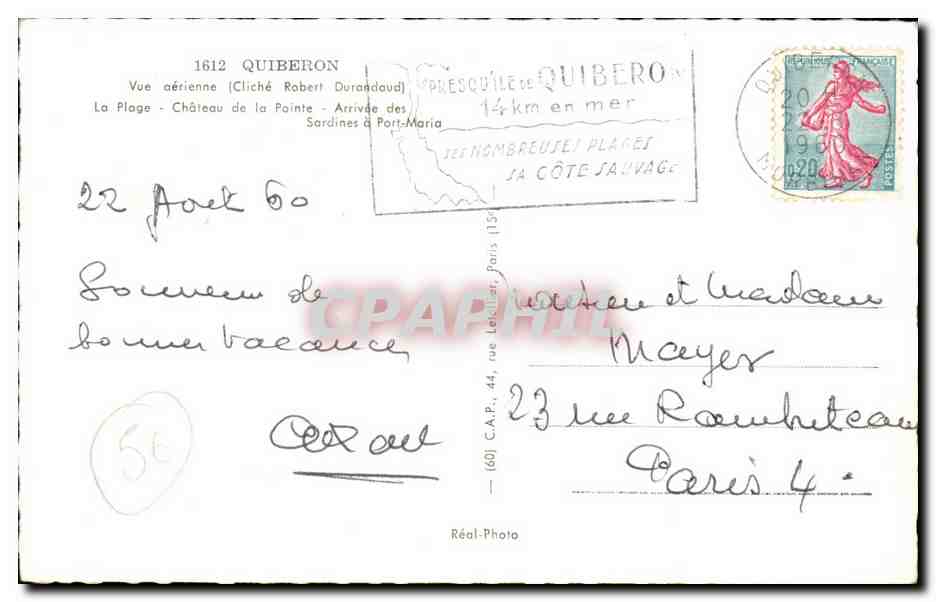 1612 QUIBERON
Vue aérienne (Cliché Robert Durandaud)
La Plage - Château de la Pointe - Arrivée des
Sardines à Port-Maria
PRESQU'ILE DE QUIBERON
14 km en mer
SES NOMBREUSES PLAGES
SA CÔTE SAUVAGE
RÉPUBLIQUE FRANÇAISE
0,20
POSTES
22 Août 60
Souvenir de
bonnes vacances
5€
Monsieur et Madame
Mayer
23 rue Rambuteau
Paris 4.
(60) C.A.P., 44, rue Letellier, Paris (15
CPAPHIL
Réal-Photo